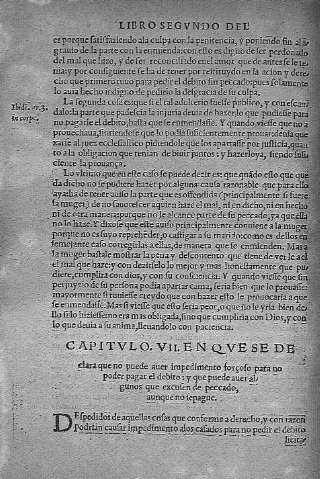 LIBRO SEGVNDO DEL
es porque satisfaziendo a la culpa con la penitencia, y poniendo fin al a-
grauio de la parte con la enmienda: con ello es digno de ser perdonado
del mal que hizo, y de ser reconciliado en el amor que de antes se le te-
nia: y por consiguiente se ha de tener por restituydo en la acion y dere-
cho que primero tuuo para pedir el debito sin pecado: pues solamente
lo auia hecho indigno de pedirlo la desgracia de su culpa.
La segunda cosa es que si el tal adulterio fuesse publico, y con escan-
dalo: la parte que padescia la injuria deue de hazer lo que pudiesse para
no pagarle el debito, hasta que se enmendasse. Y quando viesse que no a
prouechaua, si uviesse que lo podia sufficientemente prouar: de usa que
xarse al juez ecclesiastico pidiendole que los apartasse por justicia, quan-
to a la obligacion que tenian de biuir juntos: y hazerlo ya, siendo suffi-
ciente la prouança.
Lo vltimo que en este caso se puede dezir es: que quando esso que que
da dicho no se pudiere hazer por alguna causa razonable que para ello
aya: ha de tener auiso la parte que es offendida (principalmente si fuere
la muger) de no fauorescer a quien haze el mal, ni en dicho, ni en hecho
ni de otra manera: porque no le alcance parte de su peccado, ya que ella
no lo haze. Y dixe que este auiso principalmente conuiene a la muger
porque no es suyo reprehender, o castigar a su marido: como es de ellos en
semejante caso corregirlas a ellas, de manera que se enmienden. Mas a
la muger bastale mostrar la pena y descontento que tiene de verle a el
el mal que haze: y con dezirselo lo mejor y mas honestamente que pu-
diere, cumplira con dios, y con su consciencia. Y quando viesse que sin
perjuyzio de su persona podia apartar cama, seria bien que lo prouasse:
mayormente si tuuiesse creydo que con hazer esto le prouocaria a que
se enmendasse. Mas si viesse que esso seria peor, o que no le yria bien de-
llo si lo hiziesse: no era mas obligada, sino que cumpliria con Dios, y con
lo que deuia a su anima, lleuandolo con paciencia.
CAPITVLO. VII. EN QVE SE DE
clara que no puede auer impedimento forçoso para no
poder pagar el debito: y que puede auer al
gunos que escusen de peccado,
aunque no se pague.
DEspedidos de aquellas cosas que conforme a derecho, y con razon
podrian causar impedimento a los casados para no pedir el debito